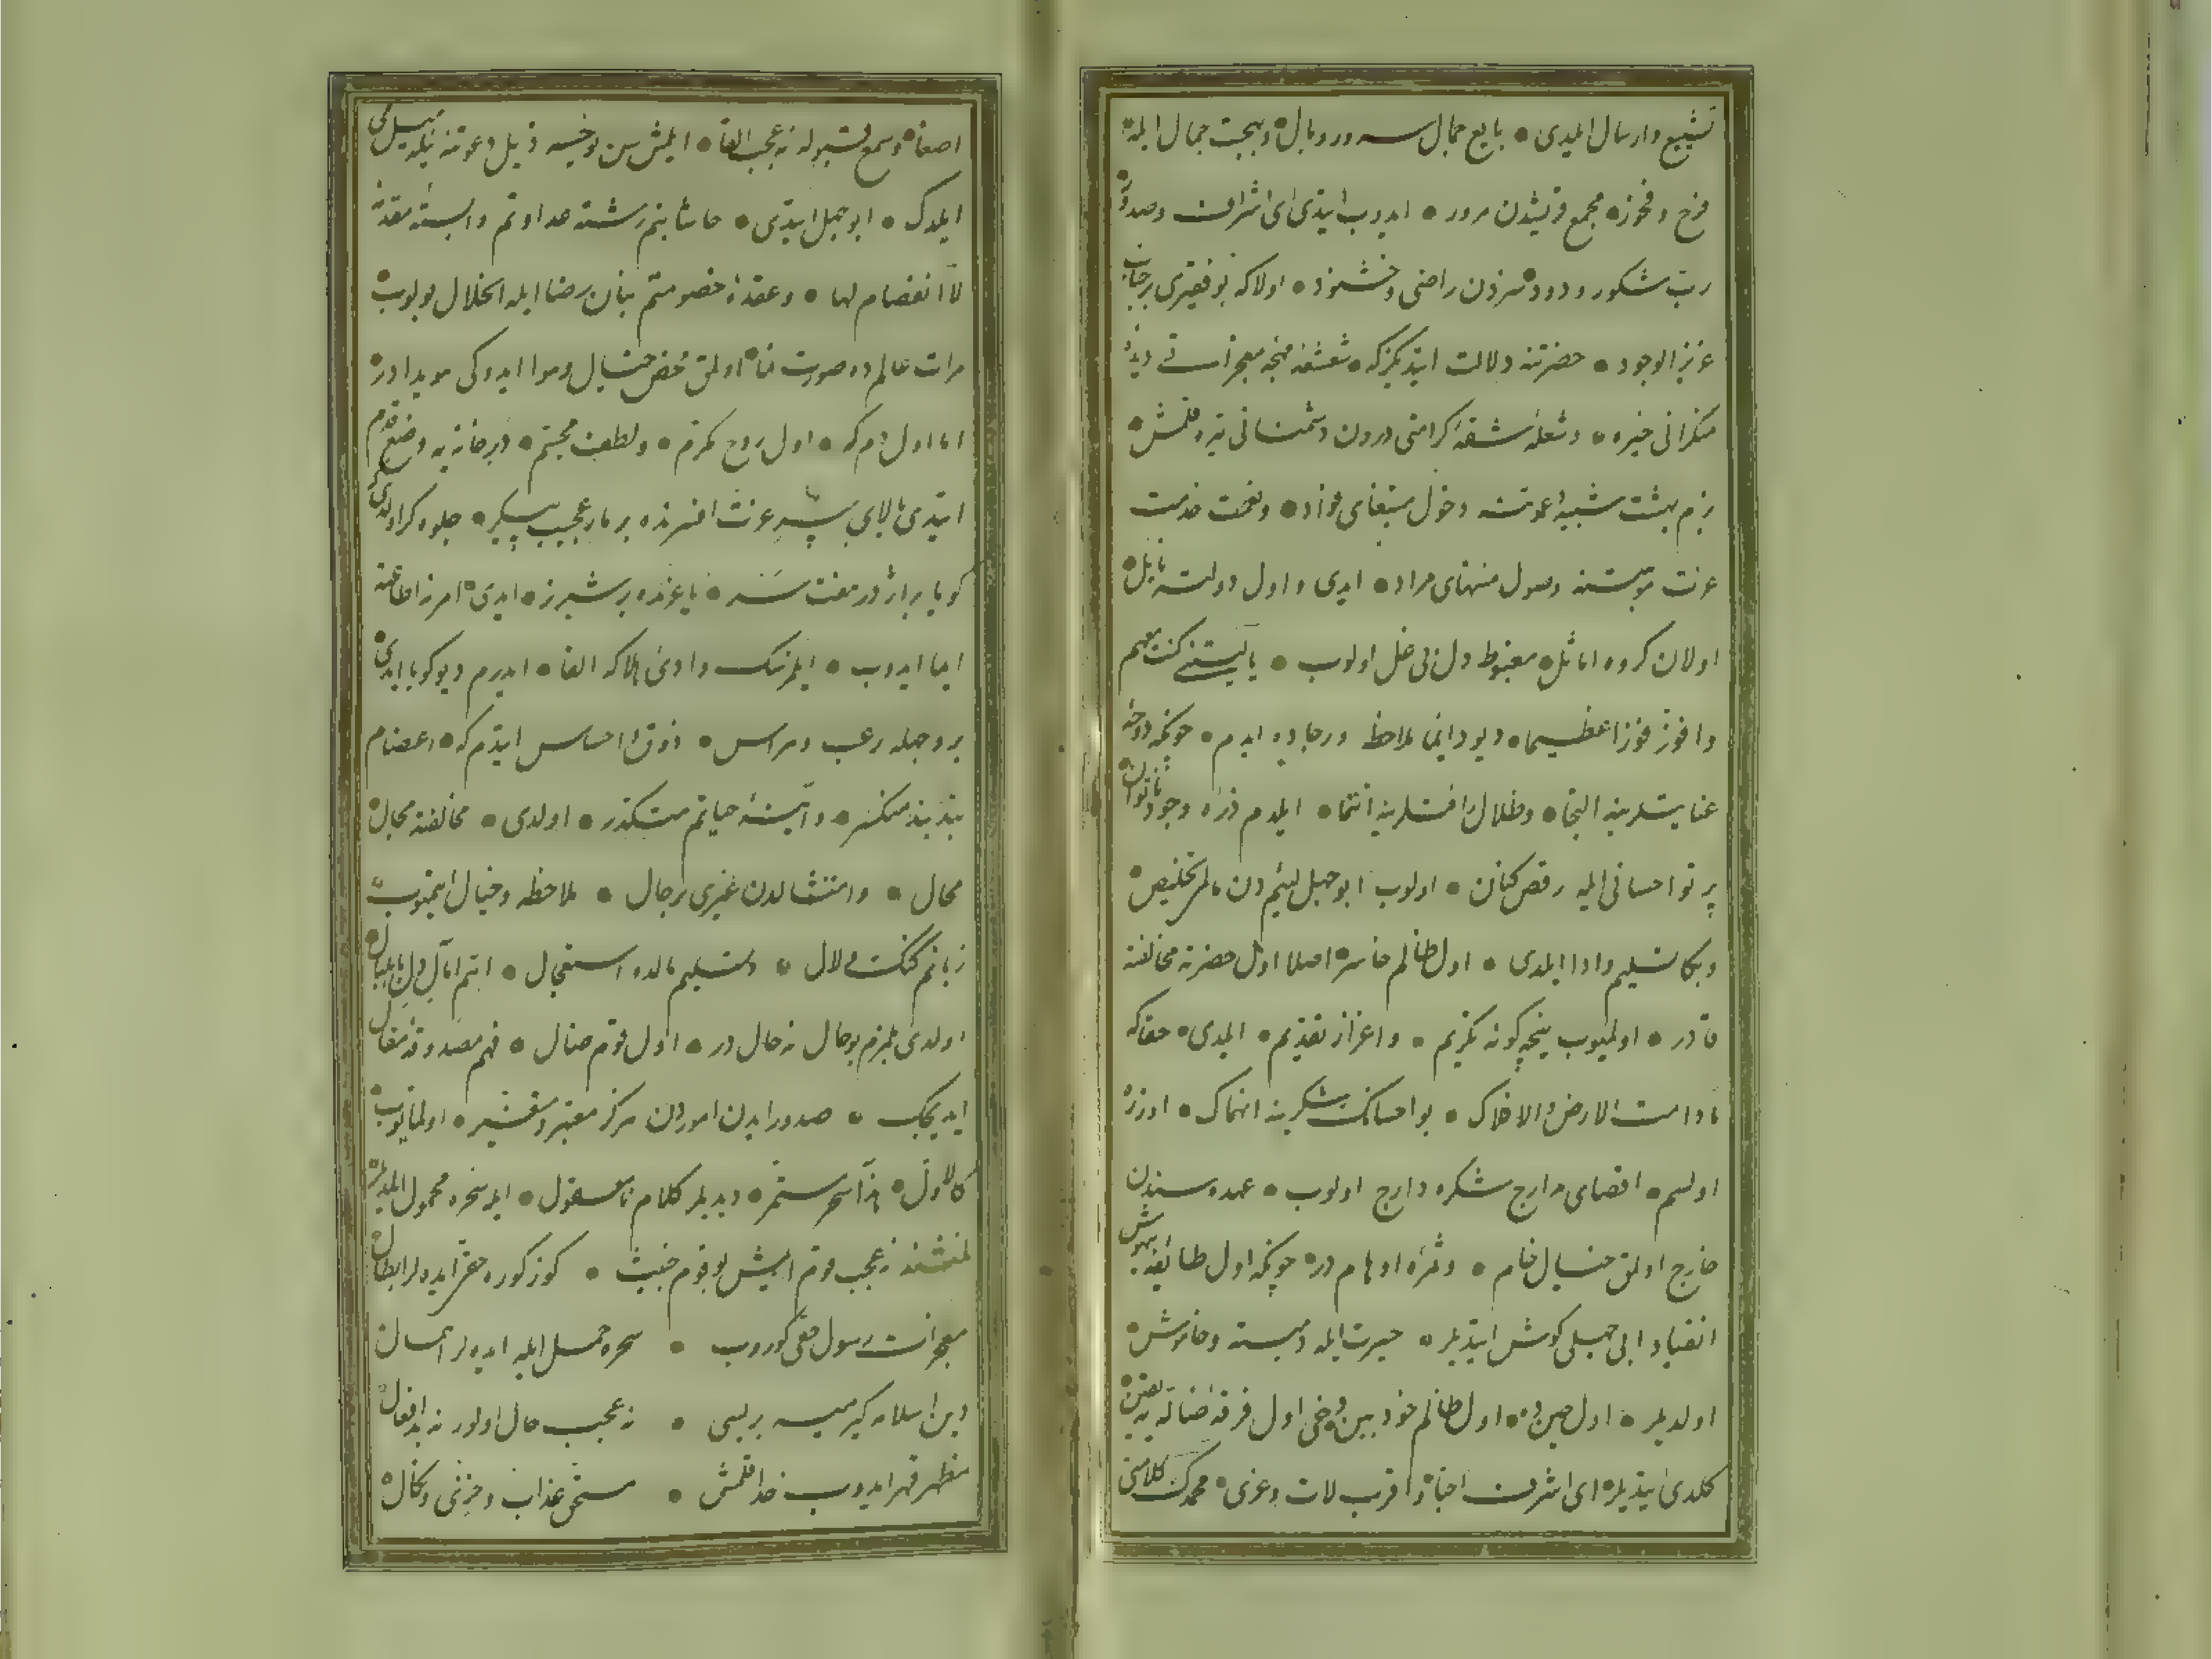 تشییع وارسال ایلدی بایع جمال سرور وبال وبهجت جمال ایله
فرح و فخور مجمع قریشدن مرور ایدوب ایتدی ای اشراف وصدور
رب شکور و ودود سزدن راضی وخشنود اولا که بو فقیری بر جناب
عزیز الوجود حضرتنه دلالت ایتدیکز که شعشعه معجزاتی دیده
منکرانی خیره وشعله کرامتی درون دشمنانی تیره قلمش
بزم بهشت شبیه دعوتنه دخول مبتغای فؤاد ونعمت خدمت
عزت وصول منتهای مراد ایدی و اول دولته نایل
اولان کروه اماثل مغبوط دل بی غل اولوب یا لیتنی کنت معهم
فافوز فوزا عظیما دیو دایما ملاحظ ورجاده ایدم چونکه دوحه
عنایتلرینه التجا وظلال رافتلرینه انتما ایلدم ذره وجود ناتوان
پرتو احسانی ایله رقص کنان اولوب ابو جهل لئیم دن مالمی تخلیص
وبکا تسلیم وادا ایلدی اول ظالم خاسر اصلا اول حضرته مخالفته
قادر اولمیوب نیچه کونه تکریم واعزاز تقدیم ایلدی حقا که
مادامت الارض والافلاک بو احسانک شکرینه انهماک اوزره
اولسم اقصای مدارج شکره دارج اولوب عهده سندن
خارج اولمق خیال خام وثمره اوهام در چونکه اول طائفه بیهوش
انقیاد ابی جهلی کوش ایتدیلر حیرت ایله دمبسته وخاموش
اولدیلر اول حین ده اول ظالم خود بین دخی اول فرقه ضاله یه
کلدی ایتدیلر ای اشرف احبا واقرب لات وعزی محمدک کلامنی
اصغا وسمع قبوله نه عجب القا ایلمش سن ذیل دعوتنه میل می
ایلدک ابو جهل ایتدی حاشا بنم رشته عداوتم وابسته عقده
لا انفصام لها وعقده خصومتم بنان رضا ایله انحلال بولوب
مرات عالم ده صورت نما اولمق محض خیال وهوا ایدوکی هویدادر
اما اول دم که اول روح مکرم ولطف مجسم در خانه یه وضع قدم
ایتدی بالای سر عزت افسرنده بر مار عجیب پیکر جلوه کر اولدی
کویا بر اژدر هفت سر یاغنده بر شیر نر ایدی امرنه اطاعته
ابا ایدوب ایلرسک وادی هلاکه القا ایدرم دیو کویا ایدی
بر وجهله رعب وهراس ذوق واحساس ایتدم که اعضام
بند بند منکسر وآیینه حیاتم متکدر اولدی مخالفته مجال
محال وامتثالدن غیری بر حال ملاحظه وخیال ایتمیوب
زبانم کنک ولال وتسلیم مالده استعجال ایتدم
اولدی بلمزم بو حال نه حال در اول قوم ضال فهم مصدوقه مقال
ایدیجک صدور ایدن اموردن هرکز معتبر ومتغیر اولمایوب
کالاول هذا سحر مستمر دیدیلر کلام نامعقول ایله سحره محمول ایلدیلر
لمنشئه نه عجب قوم ایمیش بو قوم خبیث کوز کوره حقی ایده لر ابطال
معجزات رسول حقی کوروب سحره حمل ایله ایده لر اهمال
دین اسلامه کیرمیه بریسی نه عجب حال اولور نه بد افعال
مظهر قهر ایدوب خدا قلمش مستحق عذاب وخزی ونکال